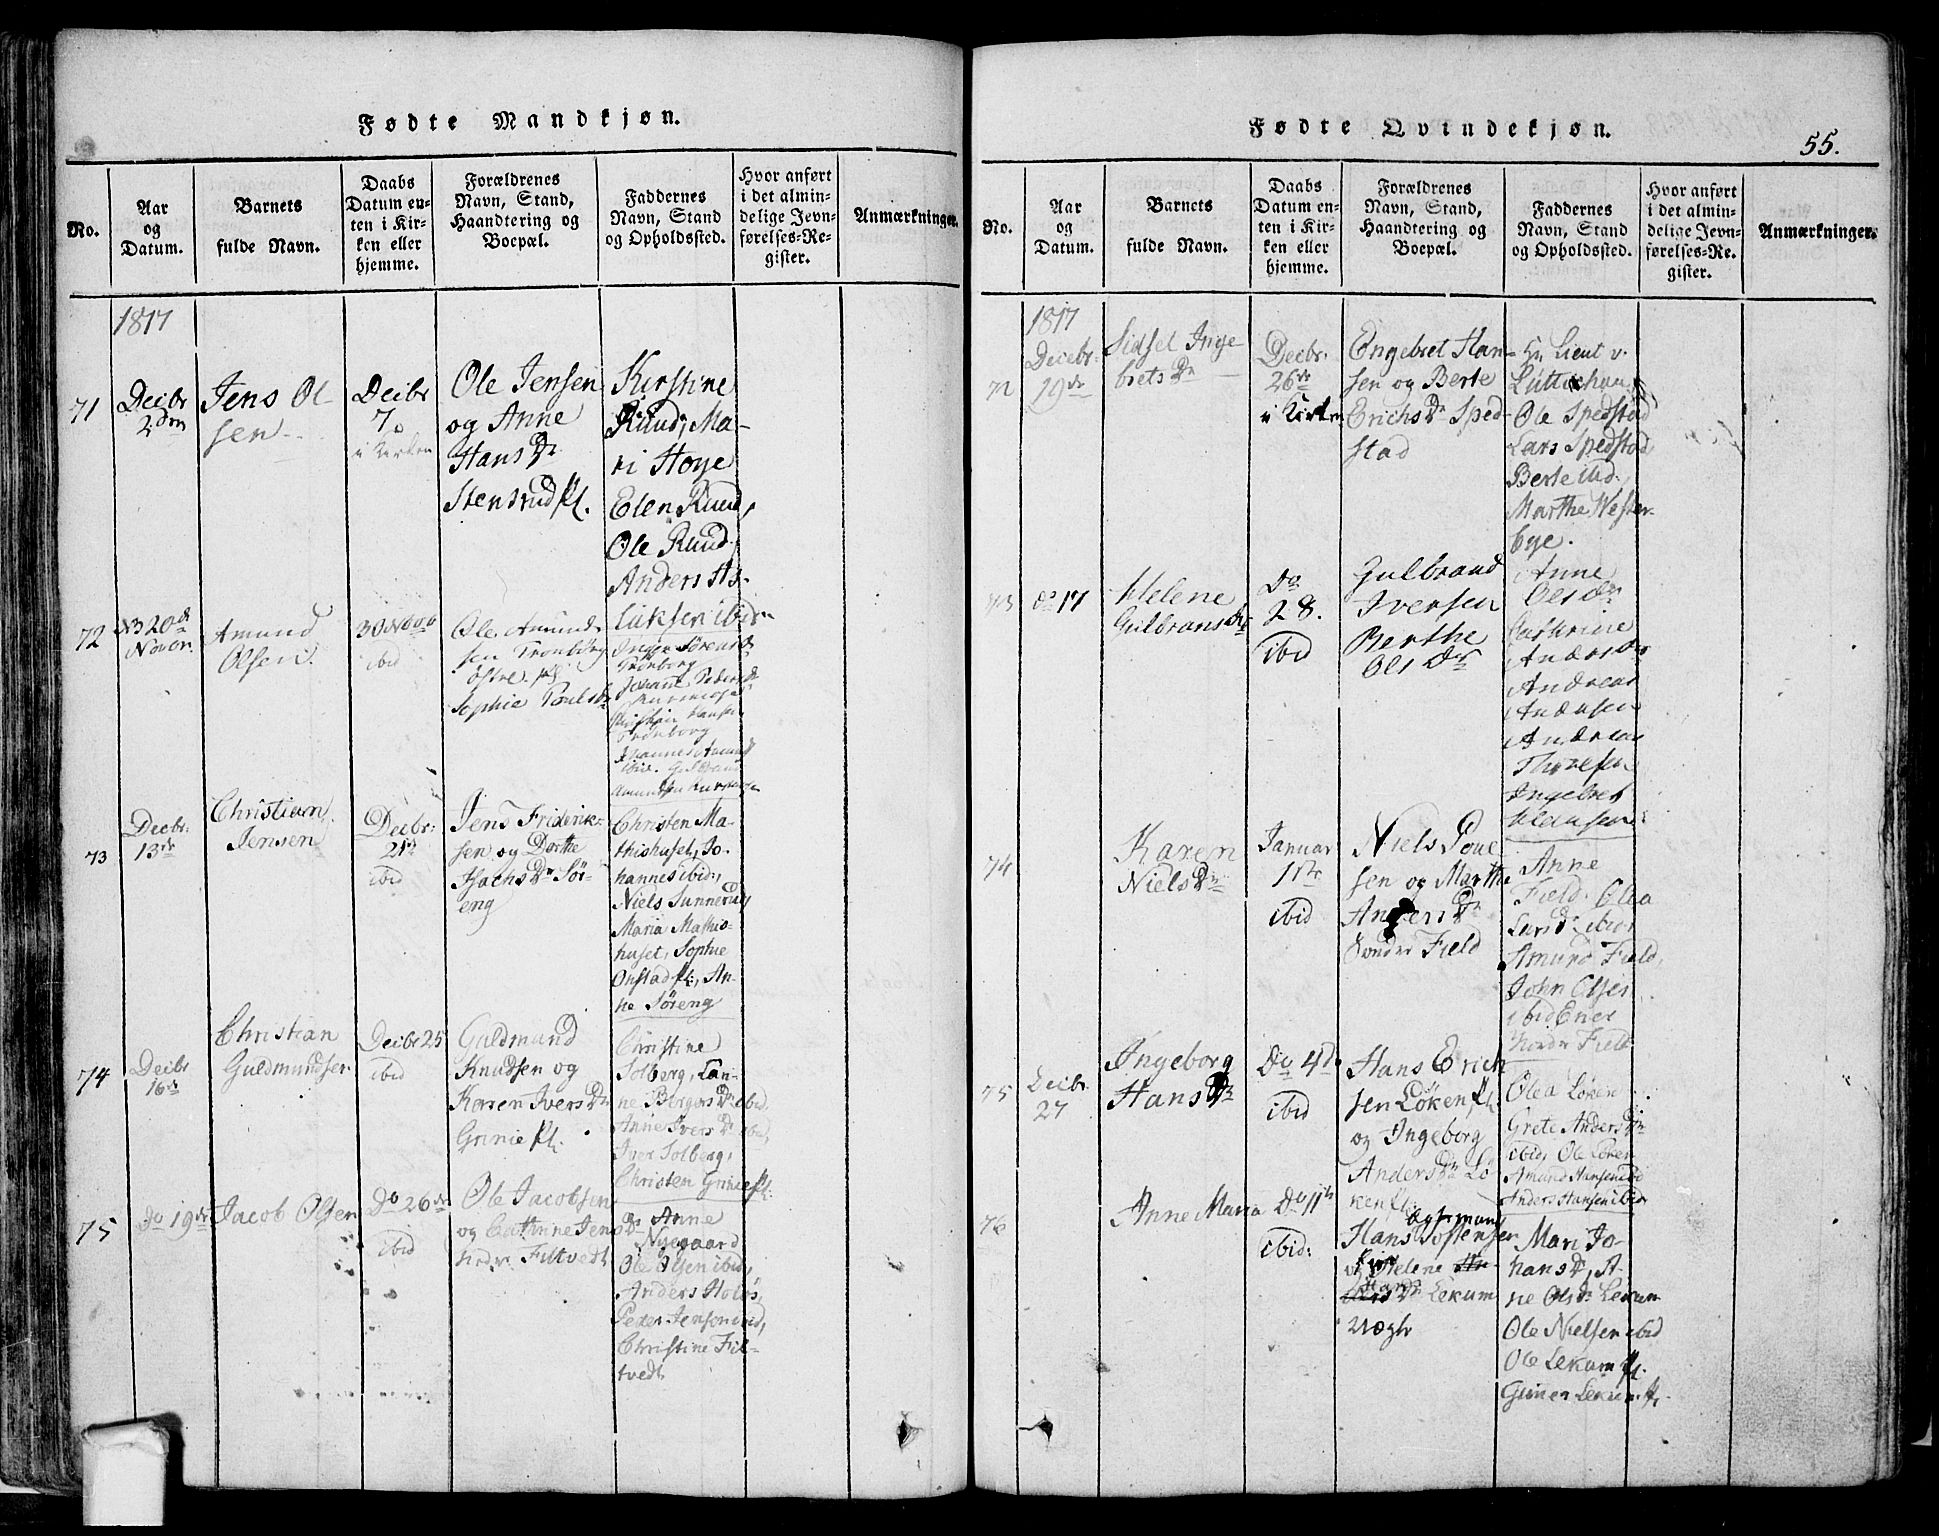 Fødte Mandkjøn.
No.
Aar
og
Datum.
Barnets
fulde Navn.
Daabs
Datum en-
ten i Kir-
ken eller
hjemme.
Forældrenes
Navn, Stand,
Haandtering og
Boepæl.
Faddernes
Navn, Stand
og Opholdssted.
Hvor anført
i det almin-
delige Jevn-
førelses-Re-
gister.
Anmærkninger.
1817
71
Decbr
2den
Jens Ol
sen
Decbr
7.
i Kirken
Ole Jensen
og Anne
Hans Dr
Stensrud Pl.
Kirstine
Ruud, Ma-
ri Hoye
Elen Ruud,
Ole Ruud
Anders
ibid
72
20de
Novbr
Amund
Olsen
30 Novb
ibid
Ole Amund
sen Tronborg
østre
Sophie Poulsdr
Inger Sørensd
Tronborg
Johanne Pedersdr
Christian Hansen
Tronborg
Johannes Amund
ibid.
Amundsen
73
Decbr:
13de
Christian
Jensen
Decbr:
21de
ibid
Jens Friderik-
sen og Dorthe
Isachs Dr Sør-
eng
Christen Ma-
thishuset, Jo-
hannes ibid:,
Niels Sunnerud
Maria Mathis-
huset, Sophie
Onstad Pl:, An-
ne Søreng
74
Decbr
16de
Christian
Guldmundsen
Decbr 25
ibid
Guldmund
Knudsen og
Karen Ivers Dr
Grinie Pl.
Christine
Solberg,
ne Børgers Dr ibid,
Anne Ivers Dr ibid,
Iver Solberg,
Christen Grinie Pl.
75
Do 19de
Jacob Olsen
Do 26de
ibid
Ole Jacobsen
og Cathrine Jens Dr
nordr Filtvedt
Anne
Nygaard
Ole Olsen ibid,
Anders Holøs,
Peder Jensen ibid,
Christine Fil-
tvedt
Fødte Qvindekjøn.
55.
No.
Aar
og
Datum.
Barnets
fulde Navn.
Daabs
Datum en-
ten i Kir-
ken eller
hjemme.
Forældrenes
Navn, Stand,
Haandtering og
Boepæl.
Faddernes
Navn, Stand
og Opholdssted.
Hvor anført
i det almin-
delige Jevn-
førelses-Re-
gister.
Anmærkninger.
1817
72
Decebr:
19de
Sidsel Inge
brets Dr
Decbr:
26de
i Kirken
Engebret Han-
sen og Berte
Erichs Dr Sped
stad
Hr Lieut v.
Lüttichau
Ole Spedstad
Lars Spedstad
Berte ibid.
Marthe Wester-
bye.
73
do 17
Helene
Gulbrans Dr
Do
28.
ibid
Gulbrand
Iversen
Berthe
Ols Dr
Anne
Ols Dr
Cathrine
Anders Dr
Andreas
Andersen
Andreas
Thoresen
Ingebret
Hansen
74
Karen
Niels Dr
Januar
1ste
ibid
Niels Poul
sen og Marthe
Anders Dr
Sønder Field
Anne
Field. Olea
Lars Dr ibid
Amund Field,
John Olsen
ibid Erich
Nordr Field
75
Decbr.
27
Ingeborg
Hans Dr
Do 4de
ibid
Hans Erich
sen Løken Pl.
og Ingeborg
Anders Dr Lø
ken Pl.
Olea Løken
Grete Anders Dr
ibid, Ole Løken
Amund Hansen ibid
Anders Hansen ibid
76
Anne Maria
Do 11te
ibid:
Hans Jostensen
og Helene
Lekum
Uægte
Mari Jo-
hans Dr, A-
ne Ols Dr Lekum
Ole Nielsen ibid
Ole Lekum Pl.
Lekum Pl.